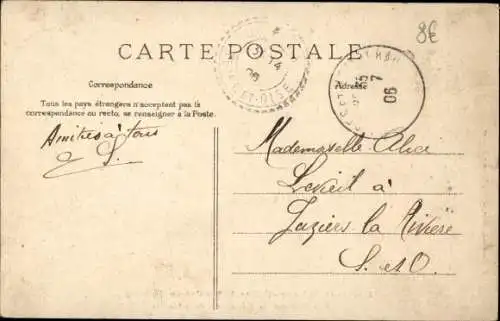 8€
CARTE POSTALE
Correspondance
Adresse
Tous les pays étrangers n'acceptent pas la
correspondance au recto, se renseigner à la Poste.
Amitiés à tous
Mademoiselle Alice
à
la Rivière
S. et O.
ET-OISE
06
7
06